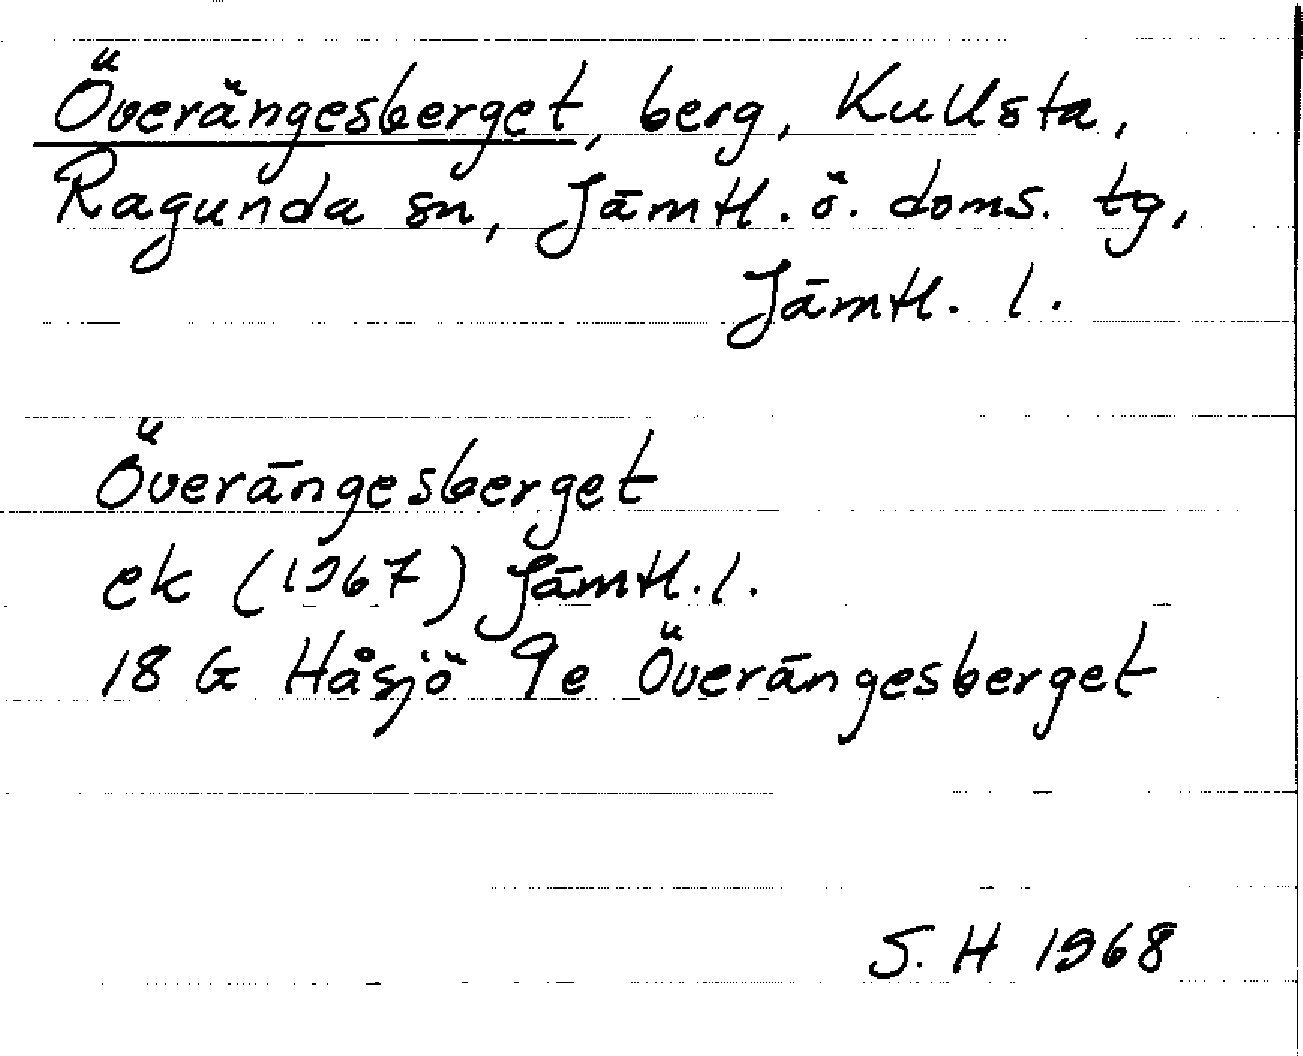 Överängesberget, berg, Kullsta,
Ragunda sn, Jämtl. ö. doms. tg,
Jämtl. l.
Överängesberget
ek (1967) Jämtl. l.
18 G Håsjö 9e Överängesberget
S. H 1968